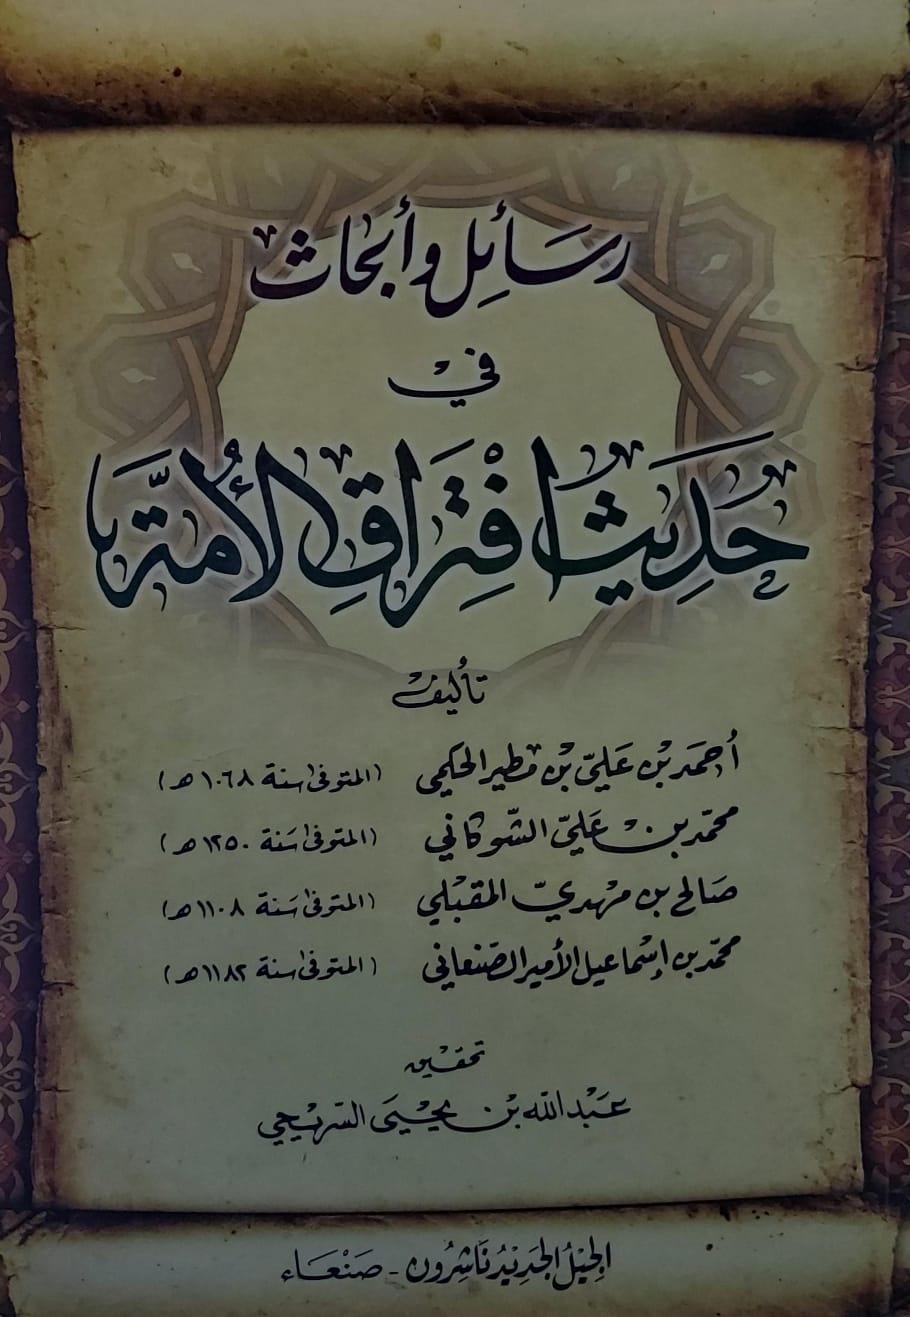 رسائل وأبحاث
في
حديث افتراق الأمة
تأليف
أحمد بن علي بن مطير الحكمي (المتوفى سنة ١٠٦٨ هـ)
محمد بن علي الشوكاني (المتوفى سنة ١٢٥٠ هـ)
صالح بن مهدي المقبلي (المتوفى سنة ١١٠٨ هـ)
محمد بن إسماعيل الأمير الصنعاني (المتوفى سنة ١١٨٢ هـ)
تحقيق
عبد الله بن يحيى السريحي
الجيل الجديد ناشرون - صنعاء